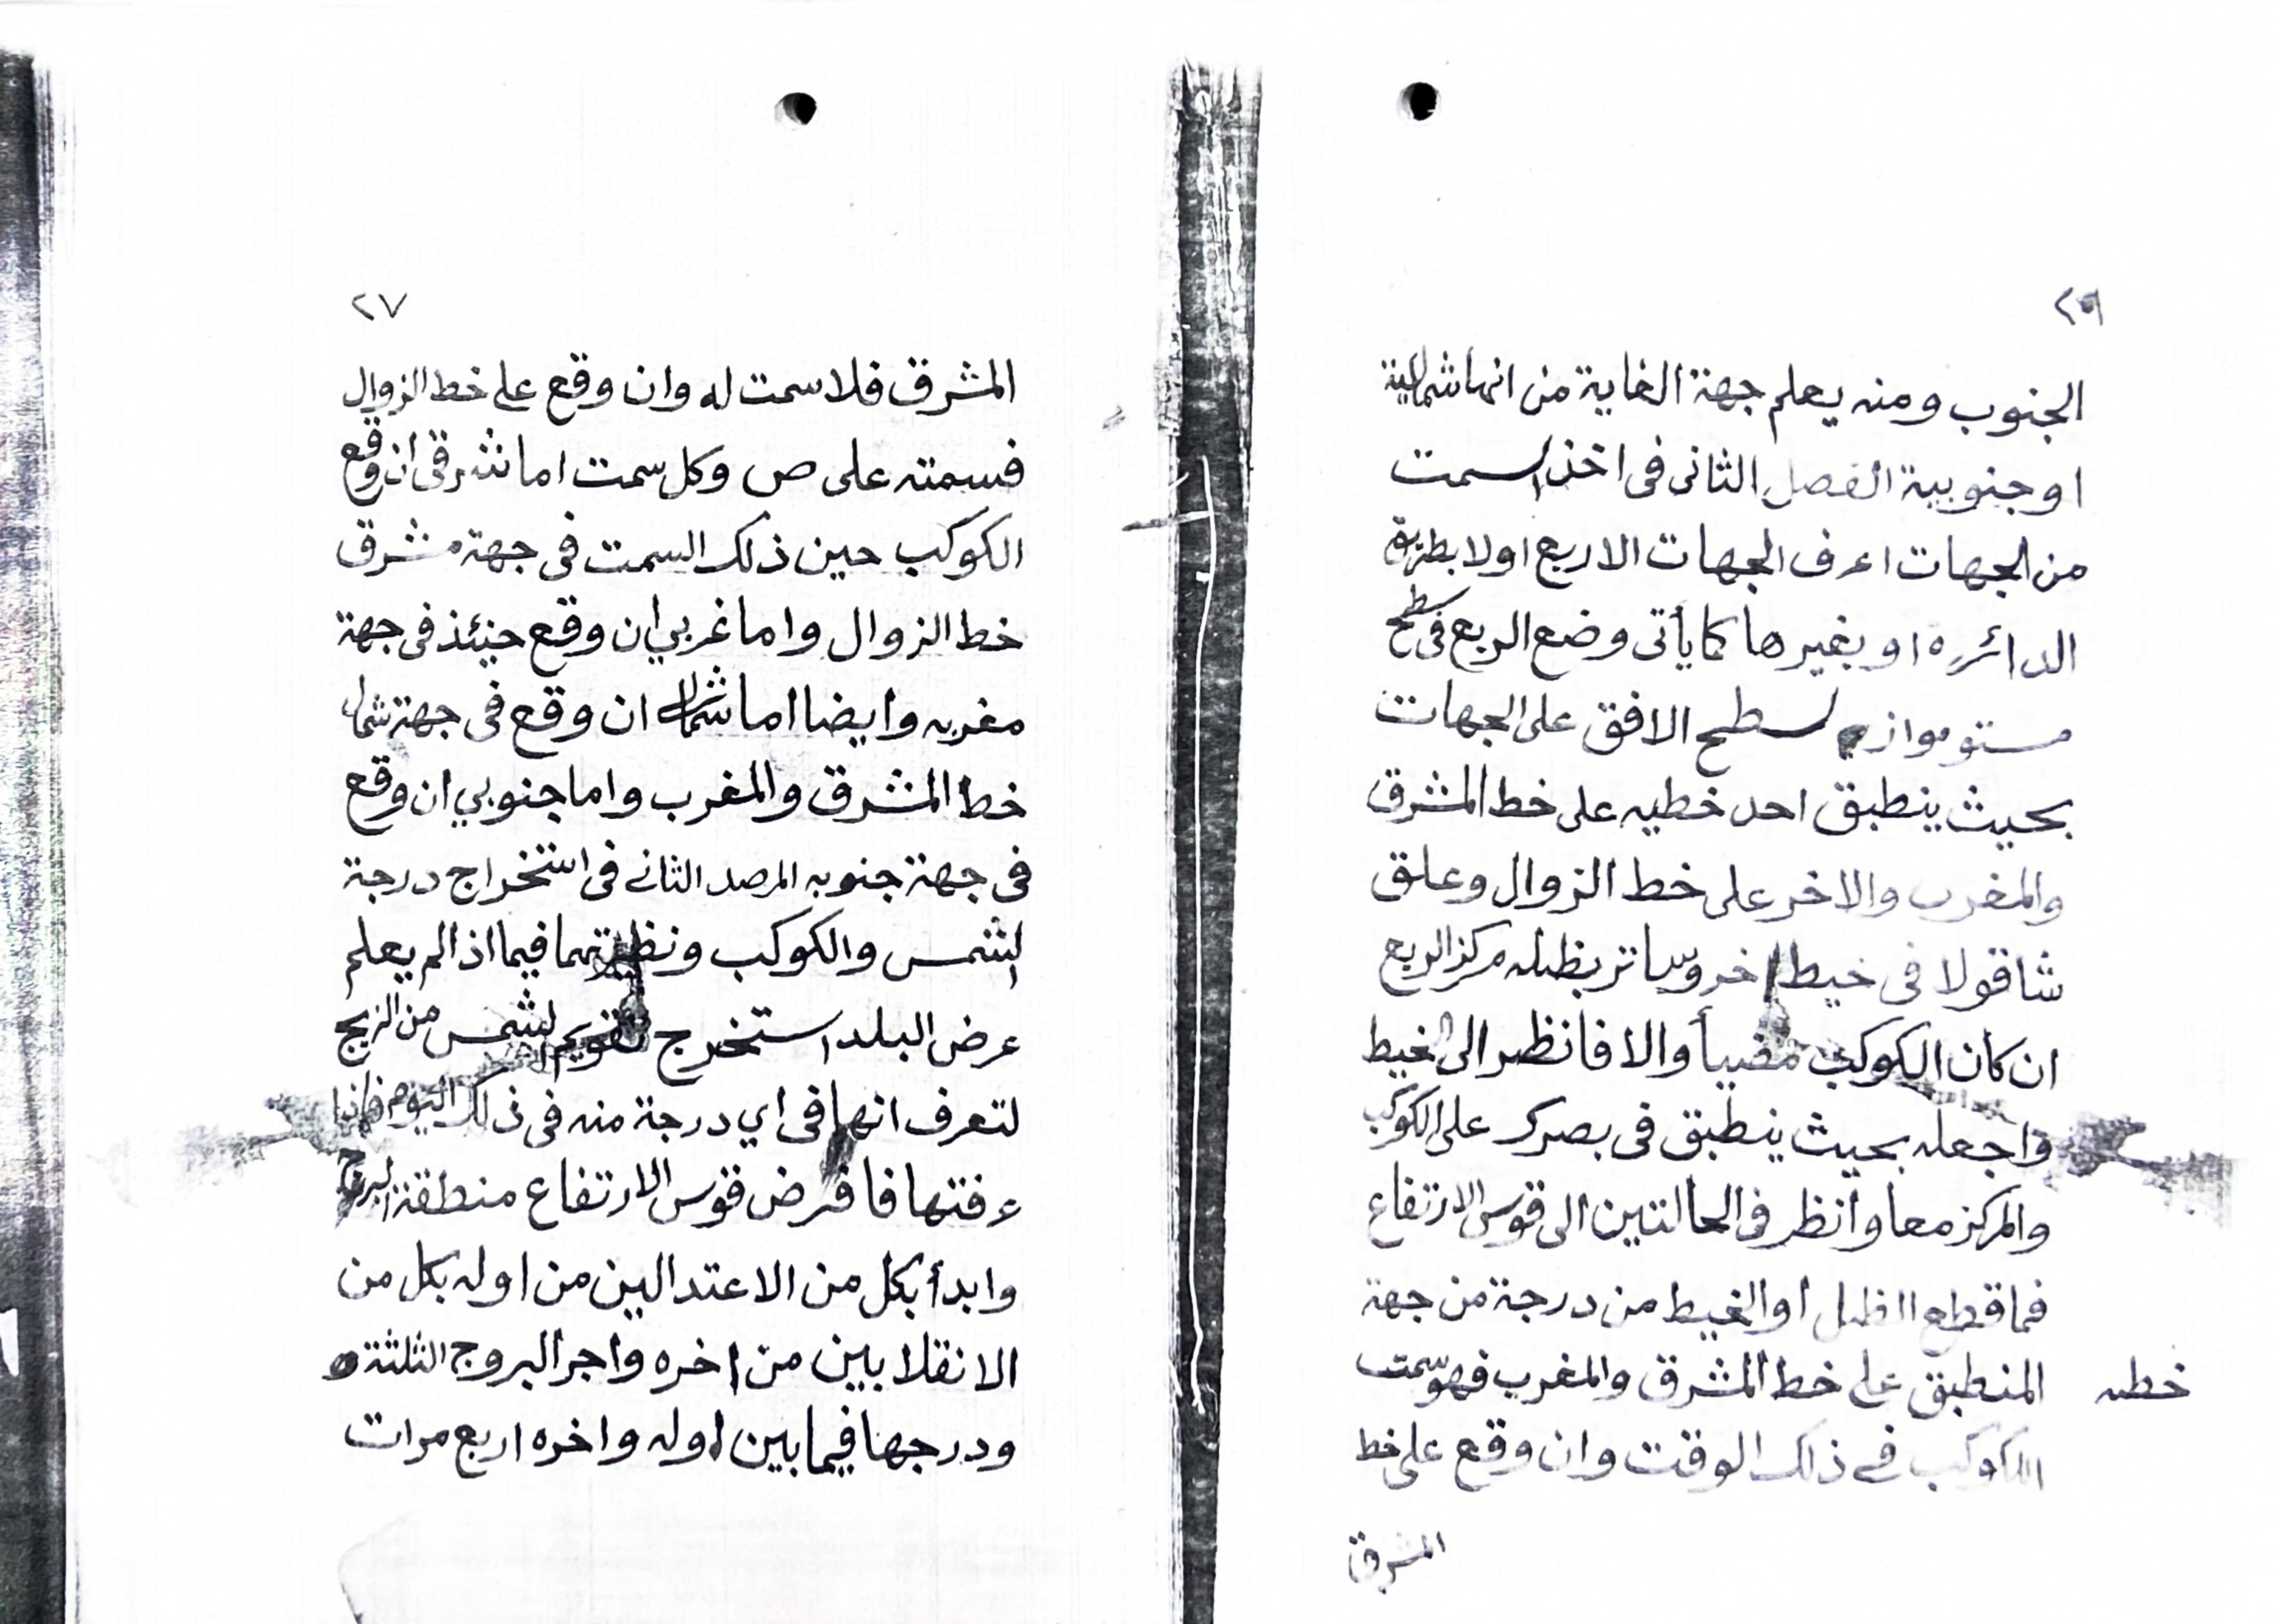 ٢٦
الجنوب ومنه يعلم جهة الغاية من انها شمالية
او جنوبية الفصل الثانى فى اخذ السمت
من الجهات اعرف الجهات الاربع اولا بطريق
الدائره او بغيرها كما يأتى وضع الربع فى سطح
مستو مواز لسطح الافق على الجهات
بحيث ينطبق احد خطيه على خط المشرق
والمغرب والاخر على خط الزوال وعلق
شاقولا فى خيط اخر وساتر بظله مركز الربع
ان كان الكوكب مضيأ والا فانظر الى الخيط
واجعله بحيث ينطبق فى بصرك على الكوكب
والمركز معا وانظر فى الحالتين الى قوس الارتفاع
فما قطع الظل او الخيط من درجة من جهة
خطه المنطبق على خط المشرق والمغرب فهو سمت
الكوكب فى ذلك الوقت وان وقع على خط
المشرق
٢٧
المشرق فلا سمت له وان وقع على خط الزوال
فسمته على ص وكل سمت اما شرقى ان وقع
الكوكب حين ذلك السمت فى جهة مشرق
خط الزوال واما غربي ان وقع حينئذ فى جهة
مغربه وايضا اما شمالى ان وقع فى جهة شمال
خط المشرق والمغرب واما جنوبي ان وقع
فى جهة جنوبه المرصد الثانى فى استخراج درجة
الشمس والكوكب ونظيرتهما فيما اذا لم يعلم
عرض البلد استخرج تقويم الشمس من الزيج
لتعرف انها فى اي درجة منه فى ذلك اليوم فاذا
عرفتها فافرض قوس الارتفاع منطقة البروج
وابدأ بكل من الاعتدالين من اوله بكل من
الانقلابين من اخره واجر البروج الثلثة
ودرجها فيما بين اوله واخره اربع مرات